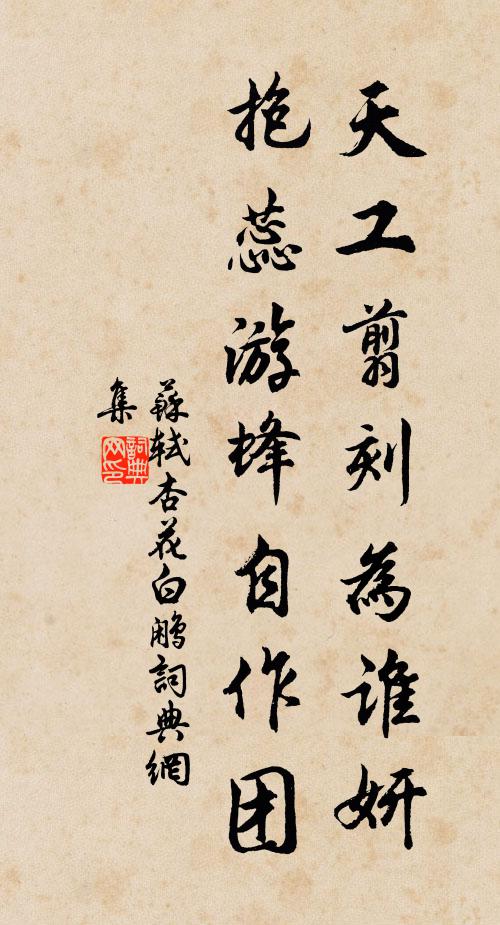 天工剪刻為誰妍
抱蕊游蜂自作团
蘇軾杏花白鷴詞典網
集
詞典
网印